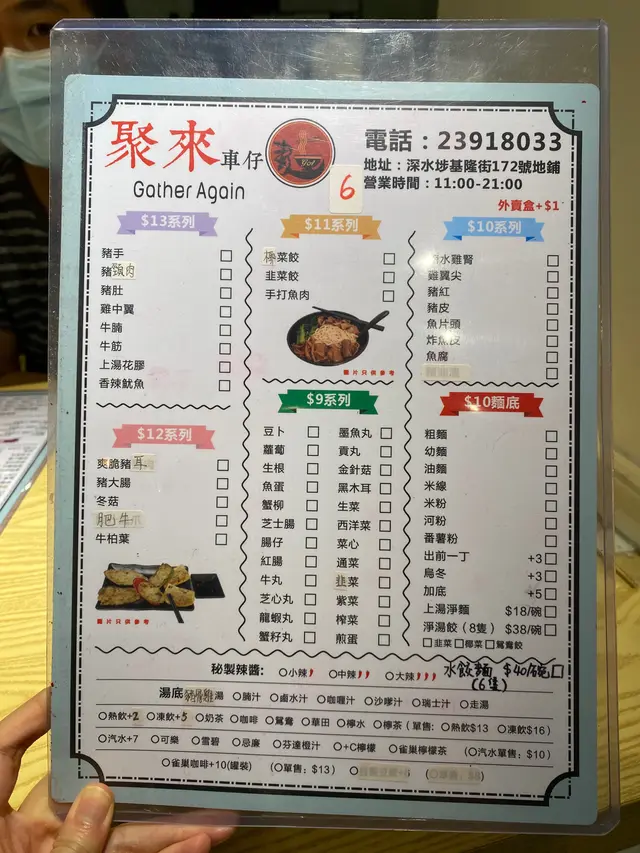 聚來車仔
Gather Again
6
電話：23918033
地址：深水埗基隆街172號地鋪
營業時間：11:00-21:00
外賣盒+$1
$13系列
豬手
豬頸肉
豬肚
雞中翼
牛腩
牛筋
上湯花膠
香辣魷魚
$12系列
爽脆豬耳
豬大腸
冬菇
肥牛
牛柏葉
圖片只供參考
$11系列
椰菜餃
韭菜餃
手打魚肉
圖片只供參考
$9系列
豆卜
蘿蔔
生根
魚蛋
蟹柳
芝士腸
腸仔
紅腸
牛丸
芝心丸
龍蝦丸
蟹籽丸
墨魚丸
貢丸
金針菇
黑木耳
生菜
西洋菜
菜心
通菜
韭菜
紫菜
榨菜
煎蛋
$10系列
水雞腎
雞翼尖
豬紅
豬皮
魚片頭
炸魚皮
魚腐
$10麵底
粗麵
幼麵
油麵
米線
米粉
河粉
番薯粉
出前一丁 +3
烏冬 +3
加底 +5
上湯淨麵 $18/碗
淨湯餃（8隻） $38/碗
韭菜 椰菜 鴛鴦餃
水餃麵 $40/碗
(6隻)
秘製辣醬： 小辣 中辣 大辣
湯底 豬骨雞湯 腩汁 鹵水汁 咖喱汁 沙嗲汁 瑞士汁 走湯
熱飲+2 凍飲+5 奶茶 咖啡 鴛鴦 華田 檸水 檸茶（單售：熱飲$13 凍飲$16）
汽水+7 可樂 雪碧 忌廉 芬達橙汁 +C檸檬 雀巢檸檬茶 （汽水單售：$10）
雀巢咖啡+10(罐裝) （單售：$13）